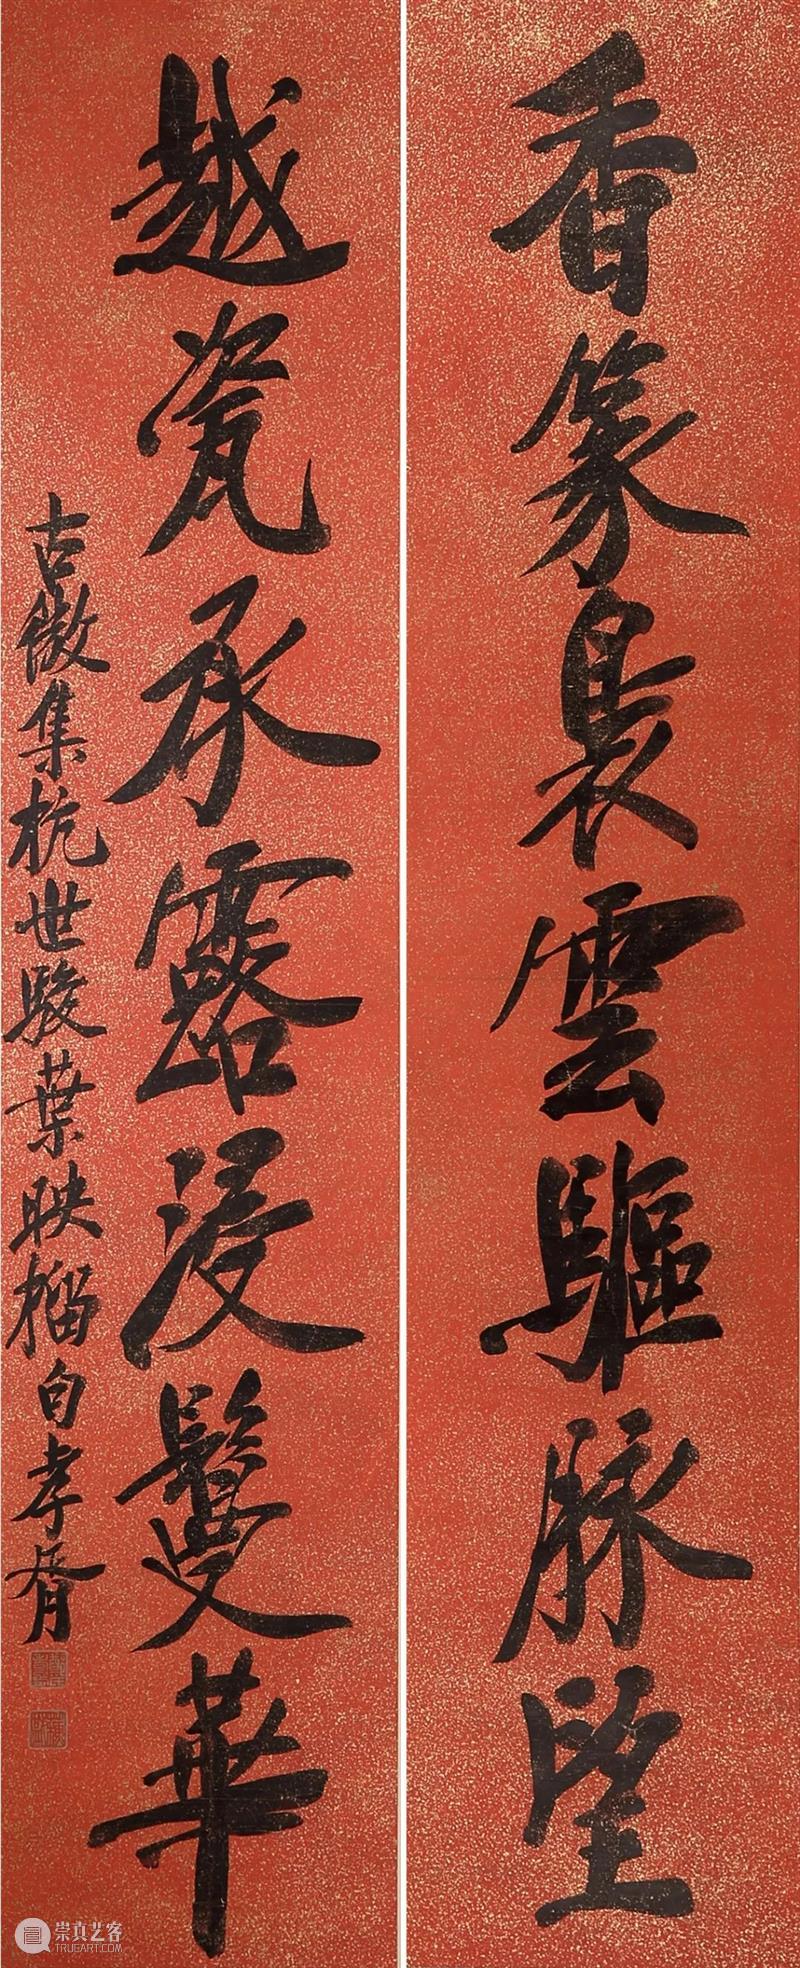 香篆裊雲驅脉望
越瓷承露浸鬘華
古微集杭世駿葉映榴句孝胥
崇真艺客
TRUEART.COM